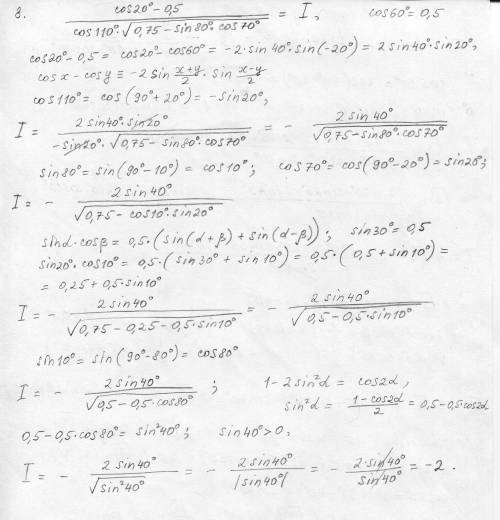 8. (cos20° - 0,5) / (cos110° · √(0,75 - sin80° · cos70°)) = I, cos60° = 0,5
cos20° - 0,5 = cos20° - cos60° = -2 · sin40° · sin(-20°) = 2 sin40° · sin20°,
cos x - cos y ≡ -2 sin (x+y)/2 · sin (x-y)/2
cos110° = cos(90° + 20°) = -sin20°,
I = (2 sin40° · sin20°) / (-sin20° · √(0,75 - sin80° · cos70°)) = - (2 sin40°) / √(0,75 - sin80° · cos70°)
sin80° = sin(90° - 10°) = cos10°; cos70° = cos(90° - 20°) = sin20°;
I = - (2 sin40°) / √(0,75 - cos10° · sin20°)
sinα · cosβ = 0,5 · (sin(α+β) + sin(α-β)); sin30° = 0,5
sin20° · cos10° = 0,5 · (sin30° + sin10°) = 0,5 · (0,5 + sin10°) =
= 0,25 + 0,5 · sin10°
I = - (2 sin40°) / √(0,75 - 0,25 - 0,5 · sin10°) = - (2 sin40°) / √(0,5 - 0,5 · sin10°)
sin10° = sin(90° - 80°) = cos80°
I = - (2 sin40°) / √(0,5 - 0,5 · cos80°) ; 1 - 2 sin²α = cos2α,
sin²α = (1 - cos2α)/2 = 0,5 - 0,5 cos2α
0,5 - 0,5 · cos80° = sin²40°; sin40° > 0,
I = - (2 sin40°) / √(sin²40°) = - (2 sin40°) / |sin40°| = - (2 · sin40°) / sin40° = -2.